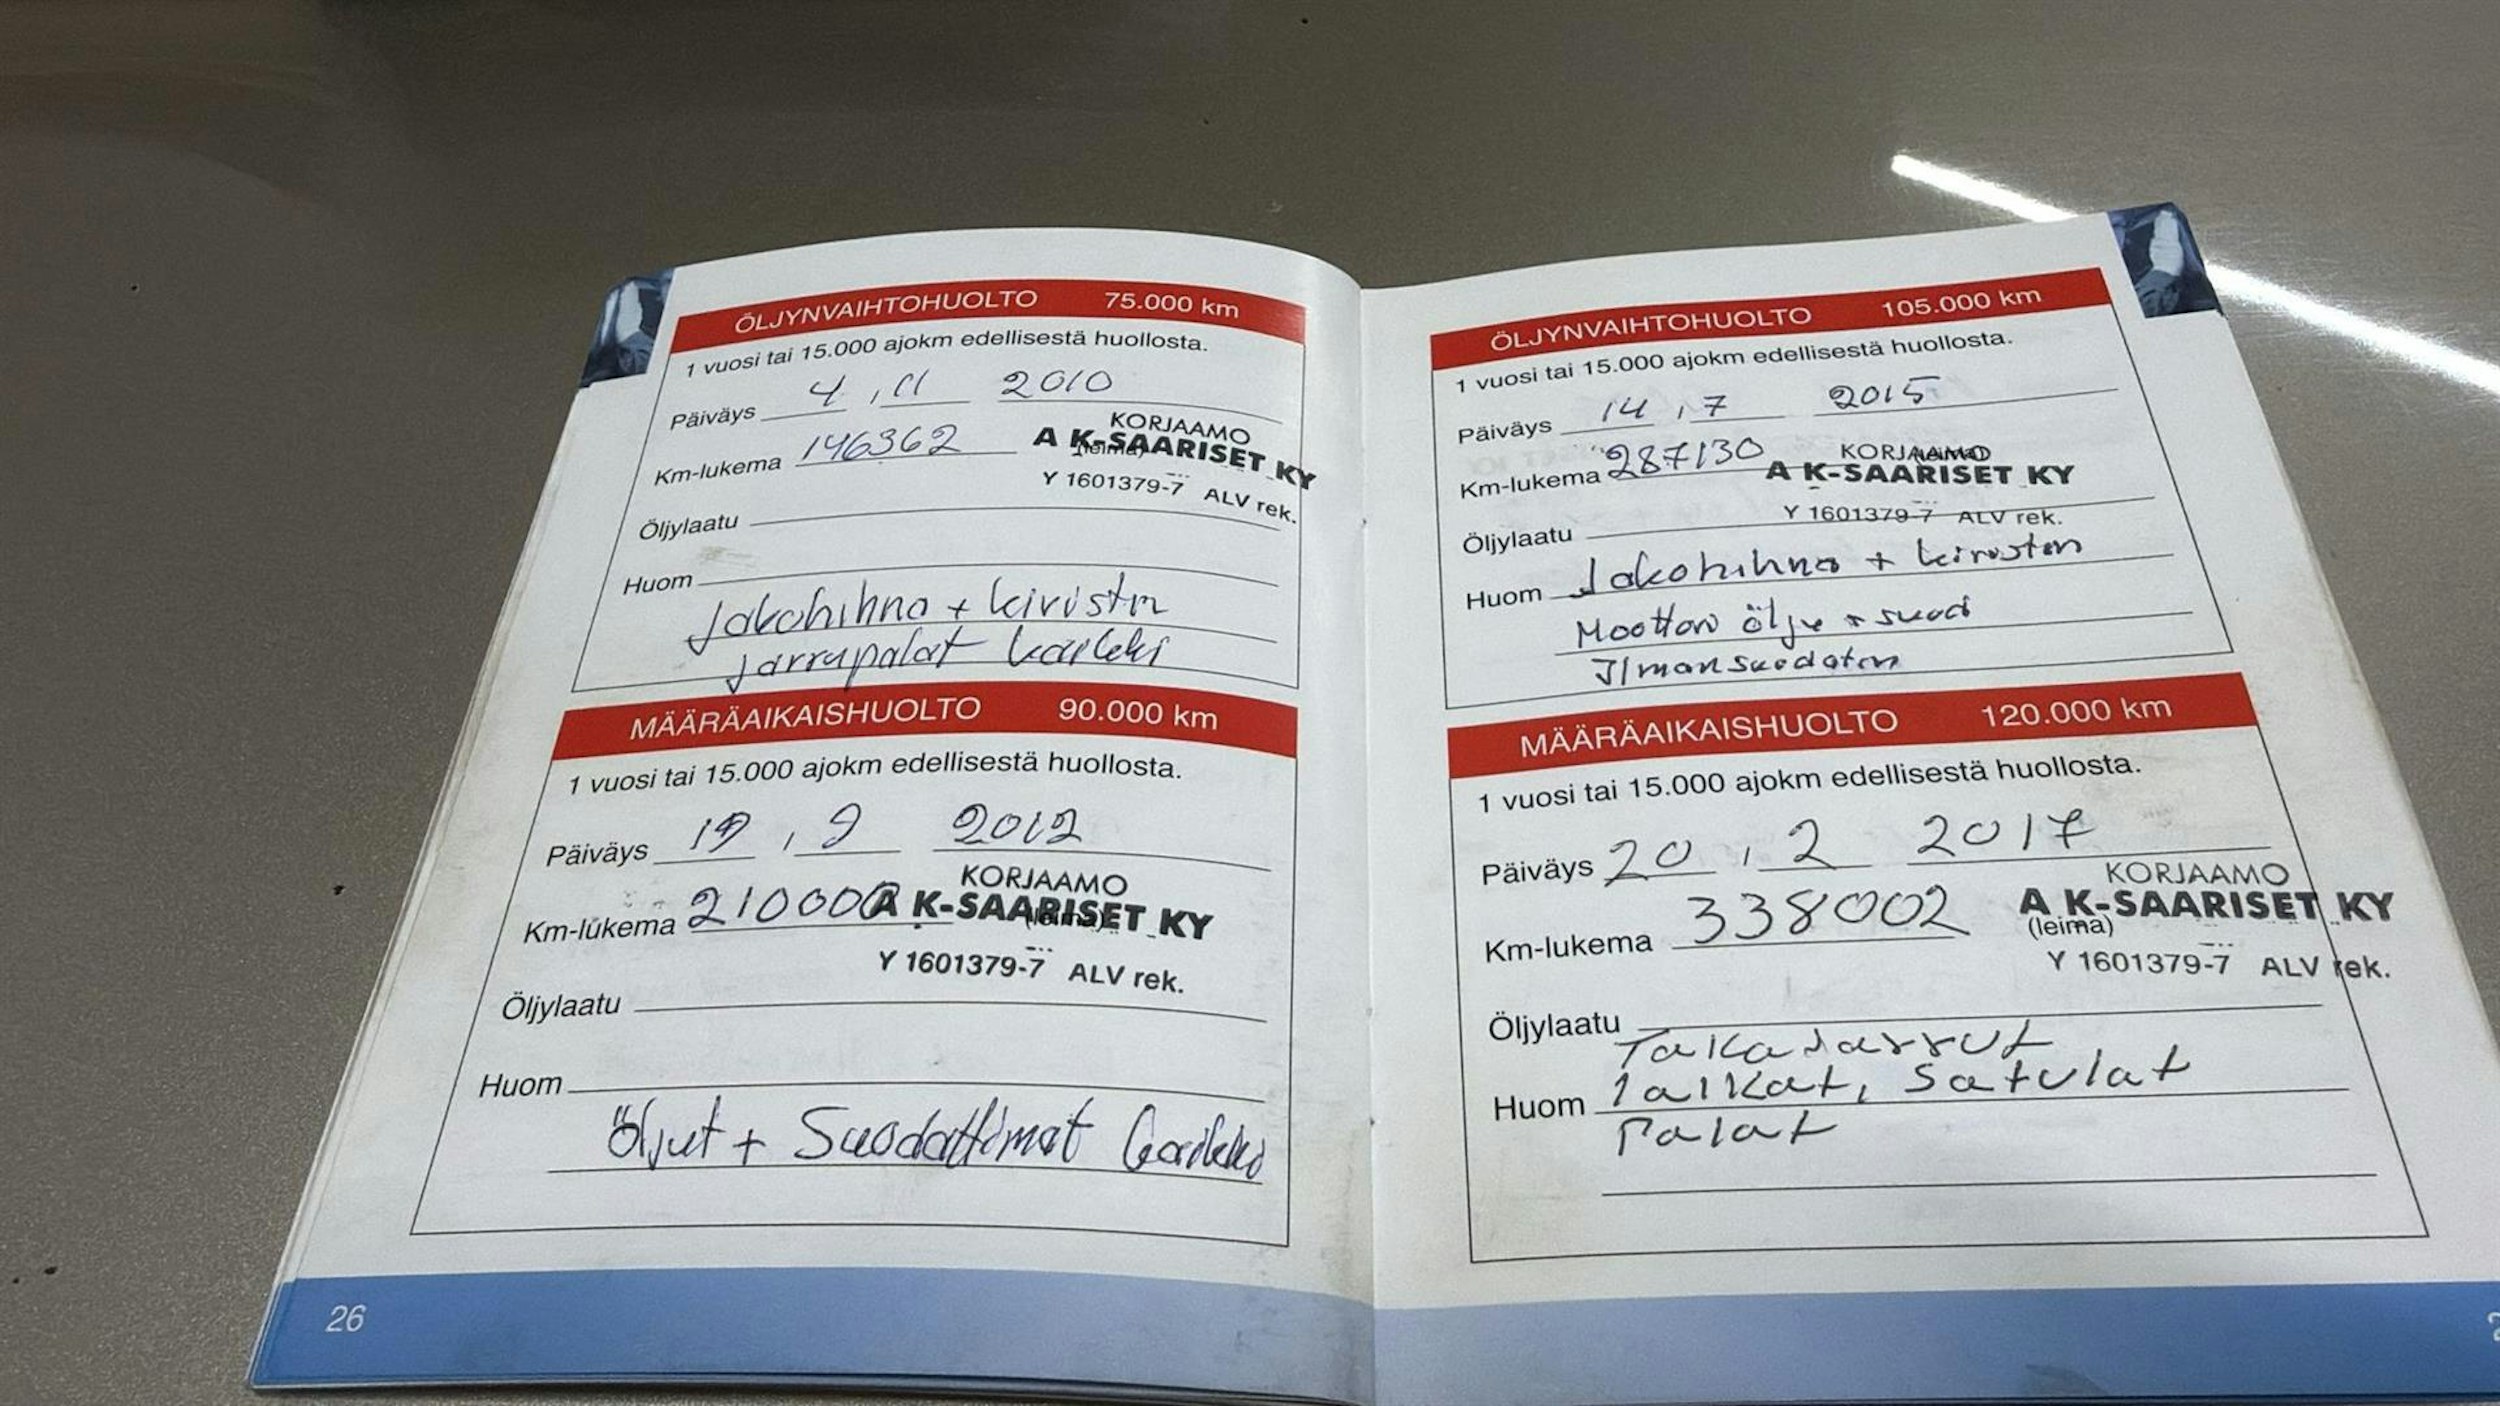 ÖLJYNVAIHTOHUOLTO 75.000 km
1 vuosi tai 15.000 ajokm edellisestä huollosta.
Päiväys 4 , 11 2010
KORJAAMO
Km-lukema 146362 A K-SAARISET KY
(leima)
Y 1601379-7 ALV rek.
Öljylaatu
Huom
Jakohihna + kiristin
jarrupalat kaikki
MÄÄRÄAIKAISHUOLTO 90.000 km
1 vuosi tai 15.000 ajokm edellisestä huollosta.
Päiväys , 2012
KORJAAMO
Km-lukema 210000 A K-SAARISET KY
(leima)
Y 1601379-7 ALV rek.
Öljylaatu
Huom
Öljyt + Suodattimat kaikki
26
ÖLJYNVAIHTOHUOLTO 105.000 km
1 vuosi tai 15.000 ajokm edellisestä huollosta.
Päiväys 14 , 7 2015
KORJAAMO
(leima)
Km-lukema 287130 A K-SAARISET KY
Y 1601379-7 ALV rek.
Öljylaatu
Huom Jakohihna + kiristin
Moottori öljy + suod
Ilmansuodatin
MÄÄRÄAIKAISHUOLTO 120.000 km
1 vuosi tai 15.000 ajokm edellisestä huollosta.
Päiväys 20 , 2 2017
KORJAAMO
Km-lukema 338002 A K-SAARISET KY
(leima)
Y 1601379-7 ALV rek.
Öljylaatu
Takajarrut
Huom laikat, satulat
Palat